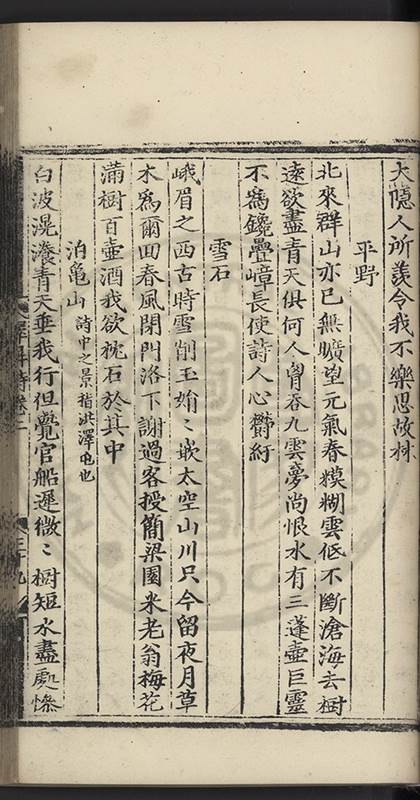 大隱人所羨令我不樂思故林
平野
北來群山亦已無曠望元氣春糢糊雲低不斷滄海去樹
遠欲盡青天俱何人胷吞九雲夢尚恨水有三蓬壺巨靈
不爲鑱疊嶂長使詩人心鬱紆
雪石
峨眉之西古時雪削玉㛹〻嵌太空山川只今留夜月草
木爲爾回春風閉門洛下謝過客授簡梁園米老翁梅花
滿樹百壺酒我欲枕石於其中
泊龜山 詩中之景指洪澤屯也
白波滉瀁青天垂我行但覺官船遲微〻樹短水盡處慘